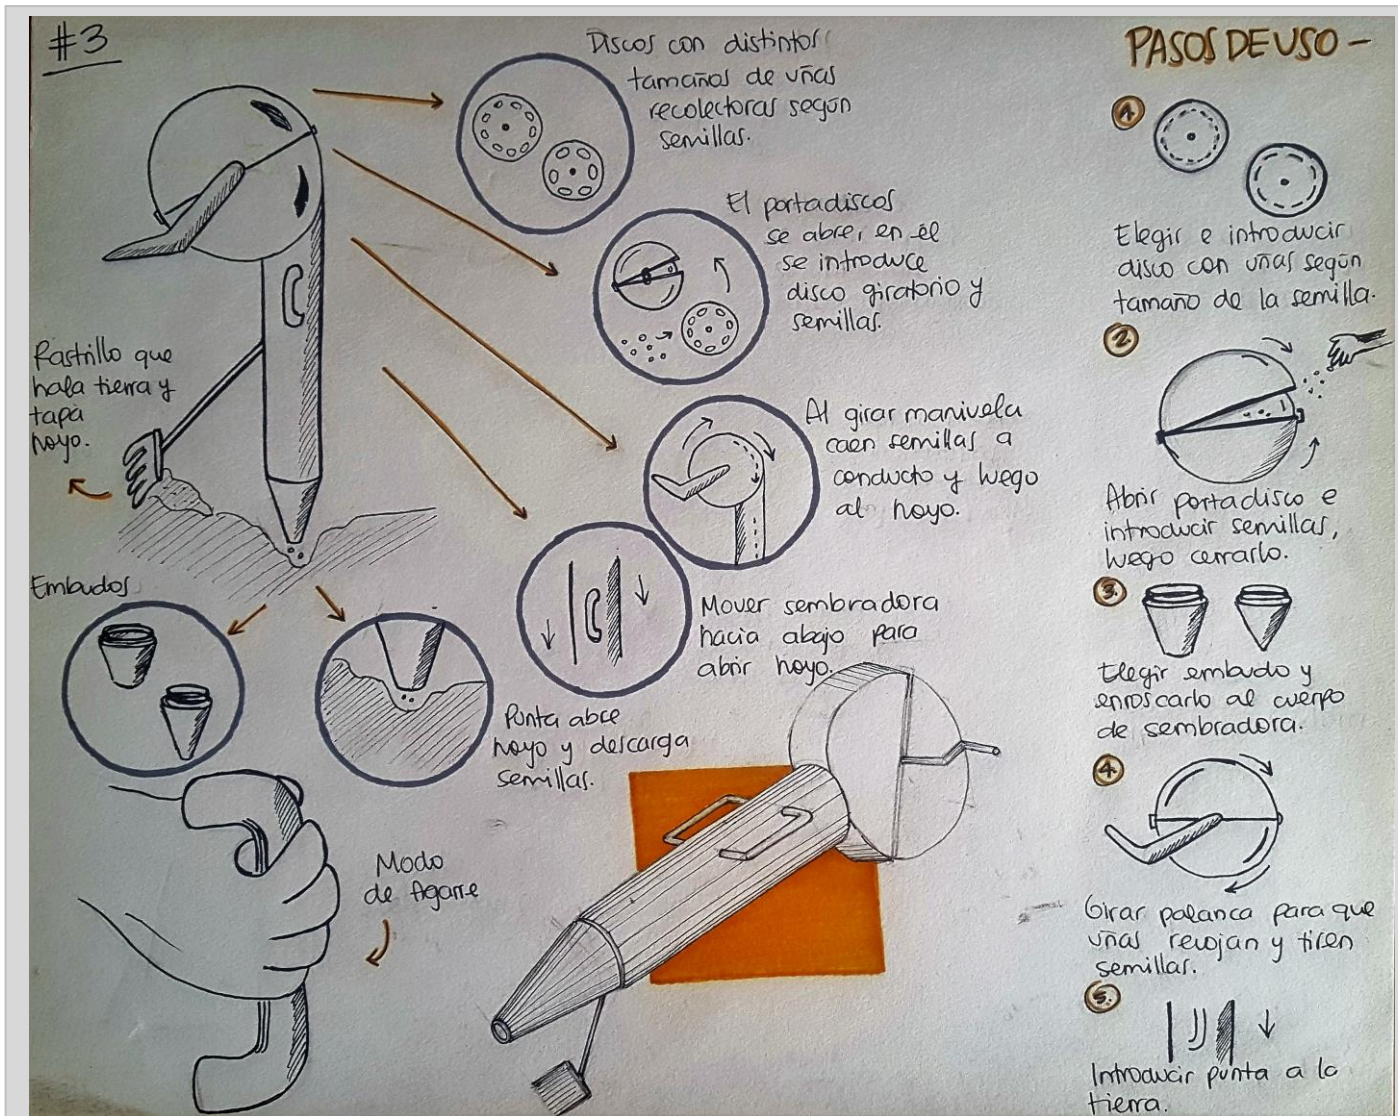 #3
Discos con distintos
tamaños de uñas
recolectoras según
semillas.
El portadiscos
se abre, en él
se introduce
disco giratorio y
semillas.
Al girar manivela
caen semillas a
conducto y luego
al hoyo.
Mover sembradora
hacia abajo para
abrir hoyo.
Rastrillo que
hala tierra y
tapa
hoyo.
Embudos
Punta abre
hoyo y descarga
semillas.
Modo
de Agarre
PASOS DE USO -
1.
Elegir e introducir
disco con uñas según
tamaño de la semilla.
2.
Abrir portadisco e
introducir semillas,
luego cerrarlo.
3.
Elegir embudo y
enroscarlo al cuerpo
de sembradora.
4.
Girar palanca para que
uñas recojan y tiren
semillas.
5.
Introducir punta a la
tierra.